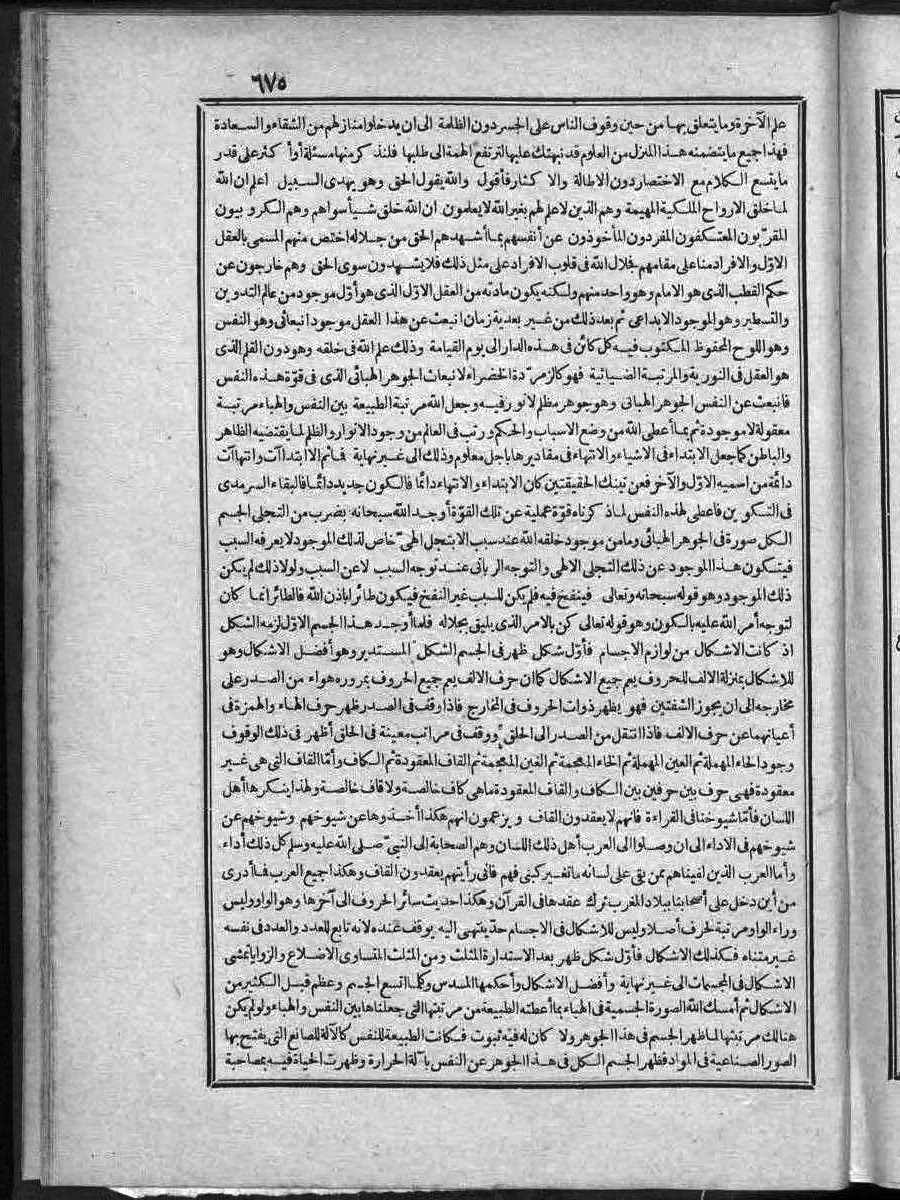 ٦٧٥
علم الآخرة وما يتعلق بها من حين وقوف الناس على الجسر دون الظلمة الى ان يدخلوا منازلهم من الشقاء والسعادة
فهذا جميع ما يتضمنه هذا المنزل من العلوم قد نبهتك عليها لترتفع الهمة الى طلبها فلنذكر منها مسئلة أوأ كثر على قدر
ما يتسع الكلام مع الاختصار دون الاطالة والا كثار فأقول والله يقول الحق وهو يهدى السبيل اعلم ان الله
لما خلق الارواح الملكية المهيمة وهم الذين لا علم لهم بغير الله لا يعلمون ان الله خلق شيأ سواهم وهم الكروبيون
المقرّبون المعتكفون المفردون المأخوذون عن أنفسهم بما أشهدهم الحق من جلاله اختص منهم المسمى بالعقل
الاوّل والافراد منا على مقامهم فجلال الله فى قلوب الافراد على مثل ذلك فلا يشهدون سوى الحق وهم خارجون عن
حكم القطب الذى هو الامام وهو واحد منهم ولكنه يكون مادته من العقل الاوّل الذى هو أوّل موجود من عالم التدوين
والتسطير وهو الموجود الابداعى ثم بعد ذلك من غير بعدية زمان انبعث عن هذا العقل موجود انبعاثى وهو النفس
وهو اللوح المحفوظ المكتوب فيه كل كائن فى هذه الدار الى يوم القيامة وذلك علم الله فى خلقه وهو دون القلم الذى
هو العقل فى النورية والمرتبة الضيائية فهو كالزمرّدة الخضراء لانبعاث الجوهر الهبائى الذى فى قوّة هذه النفس
فانبعث عن النفس الجوهر الهبائى وهو جوهر مظلم لا نور فيه وجعل الله مرتبة الطبيعة بين النفس والهباء مرتبة
معقولة لا موجودة ثم بما أعطى الله من وضع الاسباب والحكم ورتب فى العالم من وجود الانوار والظلم لما يقتضيه الظاهر
والباطن كما جعل الابتداء فى الاشياء والانتهاء فى مقاديرها باجل معلوم وذلك الى غير نهاية فما ثم الا ابتداآت وانتهاآت
دائمة من اسميه الاوّل والآخر فعن تينك الحقيقتين كان الابتداء والانتهاء دائما فالكون جديد دائما فالبقاء السرمدى
فى التكوين فاعطى لهذه النفس لما ذكرناه قوّة عملية عن تلك القوّة أوجد الله سبحانه بضرب من التجلى الجسم
الكل صورة فى الجوهر الهبائى وما من موجود خلقه الله عند سبب الا بتجل الهىّ خاص لذلك الموجود لا يعرفه السبب
فيتكون هذا الموجود عن ذلك التجلى الالهى والتوجه الربانى عند توجه السبب لا عن السبب ولولا ذلك لم يكن
ذلك الموجود وهو قوله سبحانه وتعالى فينفخ فيه فلم يكن للسبب غير النفخ فيكون طائرا باذن الله فالطائر انما كان
لتوجه أمر الله عليه بالكون وهو قوله تعالى كن بالامر الذى يليق بجلاله فلما أوجد هذا الجسم الاوّل لزمه الشكل
اذ كانت الاشكال من لوازم الاجسام فأوّل شكل ظهر فى الجسم الشكل المستدير وهو أفضل الاشكال وهو
للاشكال بمنزلة الالف للحروف يعم جميع الاشكال كما ان حرف الالف يعم جميع الحروف بمروره هواء من الصدر على
مخارجه الى ان يجوز الشفتين فهو يظهر ذوات الحروف فى المخارج فاذا وقف فى الصدر ظهر حرف الهاء والهمزة فى
أعيانهما عن حرف الالف فاذا انتقل من الصدر الى الحلق ووقف فى مراتب معينة فى الحلق أظهر فى ذلك الوقوف
وجود الحاء المهملة ثم العين المهملة ثم الخاء المعجمة ثم الغين المعجمة ثم القاف المعقودة ثم الكاف وأمّا القاف التى هى غير
معقودة فهى حرف بين حرفين بين الكاف والقاف المعقودة ما هى كاف خالصة ولا قاف خالصة ولهذا ينكرها أهل
اللسان فأمّا شيوخنا فى القراءة فانهم لا يعقدون القاف ويزعمون انهم هكذا أخذوها عن شيوخهم وشيوخهم عن
شيوخهم فى الاداء الى ان وصلوا الى العرب أهل ذلك اللسان وهم الصحابة الى النبىّ صلى الله عليه وسلم كل ذلك أداء
وأما العرب الذين لقيناهم ممن بقى على لسانه ما تغير كبنى فهم فانى رأيتهم يعقدون القاف وهكذا جميع العرب فما أدرى
من أين دخل على أصحابنا ببلاد المغرب ترك عقدها فى القرآن وهكذا حديث سائر الحروف الى آخرها وهو الواو وليس
وراء الواو مرتبة لحرف أصلا وليس للاشكال فى الاجسام حدّ ينتهى اليه يوقف عنده لانه تابع للعدد والعدد فى نفسه
غير متناه فكذلك الاشكال فأوّل شكل ظهر بعد الاستدارة المثلث ومن المثلث المتساوى الاضلاع والزوايا تمشى
الاشكال فى المجسمات الى غير نهاية وأفضل الاشكال وأحكمها المسدس وكلما اتسع الجسم وعظم قبل الكثير من
الاشكال ثم أمسك الله الصورة الجسمية فى الهباء بما أعطته الطبيعة من مرتبتها التى جعلناها بين النفس والهباء ولو لم يكن
هنالك مرتبتها لما ظهر الجسم فى هذا الجوهر ولا كان له فيه ثبوت فكانت الطبيعة للنفس كالآلة للصانع التى يفتح بها
الصور الصناعية فى المواد فظهر الجسم الكل فى هذا الجوهر عن النفس بآلة الحرارة وظهرت الحياة فيه بمصاحبة